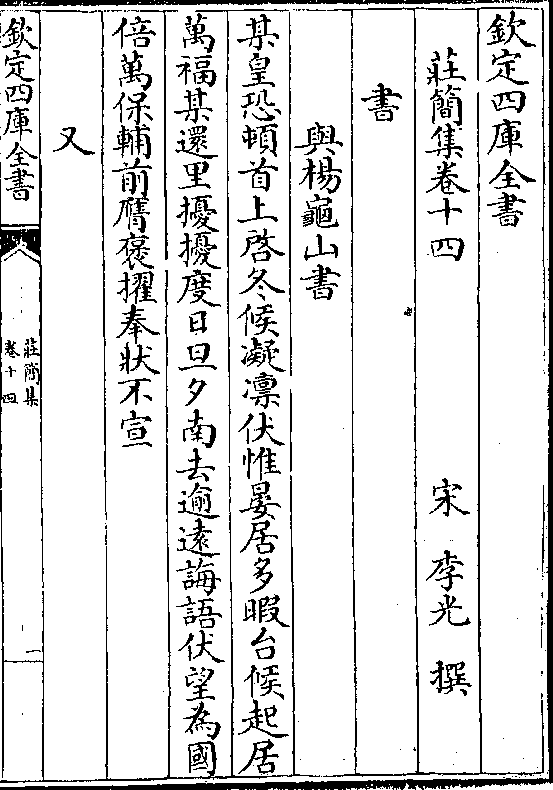 欽定四庫全書
莊簡集卷十四
宋 李光 撰
書
與楊龜山書
某皇恐頓首上啓冬候凝凛伏惟晏居多暇台候起居
萬福某還里擾擾度日旦夕南去逾遠誨語伏望為國
倍萬保輔前膺褒擢奉狀不宣
又
欽定四庫全書
莊簡集
卷十四
一